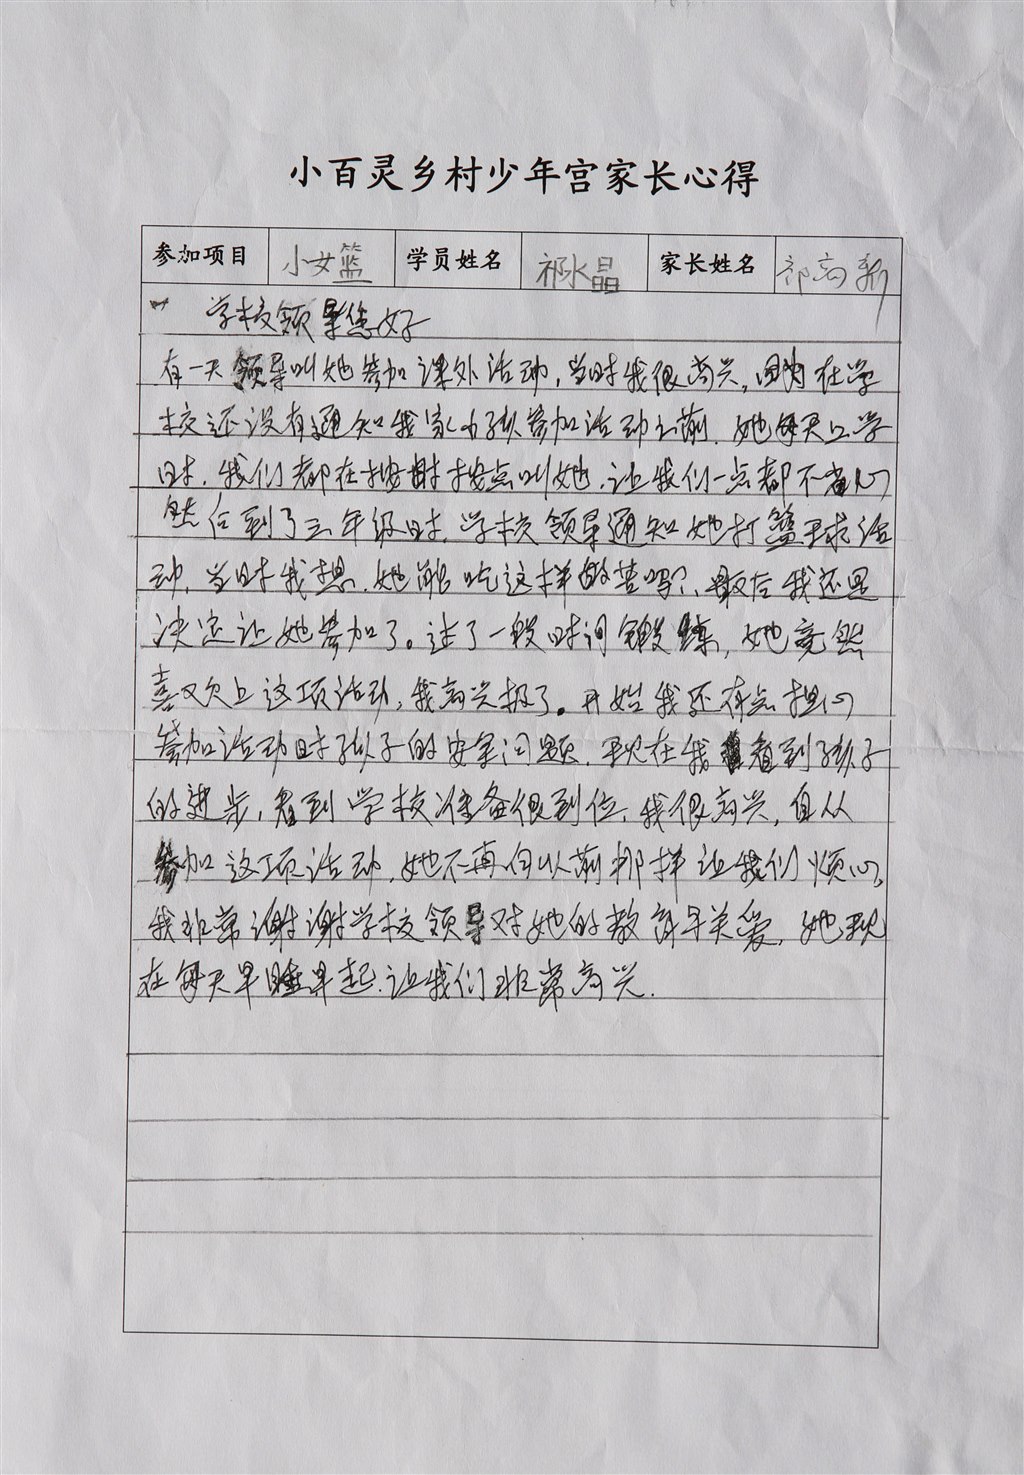 小百灵乡村少年宫家长心得
参加项目 小女篮 学员姓名 祁水晶 家长姓名 祁高新
学校领导您好
有一天领导叫她参加课外活动,当时我很高兴,因为在学
校还没有通知我家小孩参加活动之前.她每天上学
时.我们都在按时按点叫她.让我们一点都不省心
然后到了三年级时.学校领导通知她打篮球活
动,当时我想.她能吃这样的苦吗?.最后我还是
决定让她参加了。过了一段时间锻炼,她竟然
喜欢上这项活动,我高兴极了。开始我还有点担心
参加活动时孩子的安全问题.现在我看到孩子
的进步,看到学校准备很到位.我很高兴,自从
参加这项活动,她不再向以前那样让我们烦心,
我非常谢谢学校领导对她的教育与关爱,她现
在每天早睡早起.让我们非常高兴.